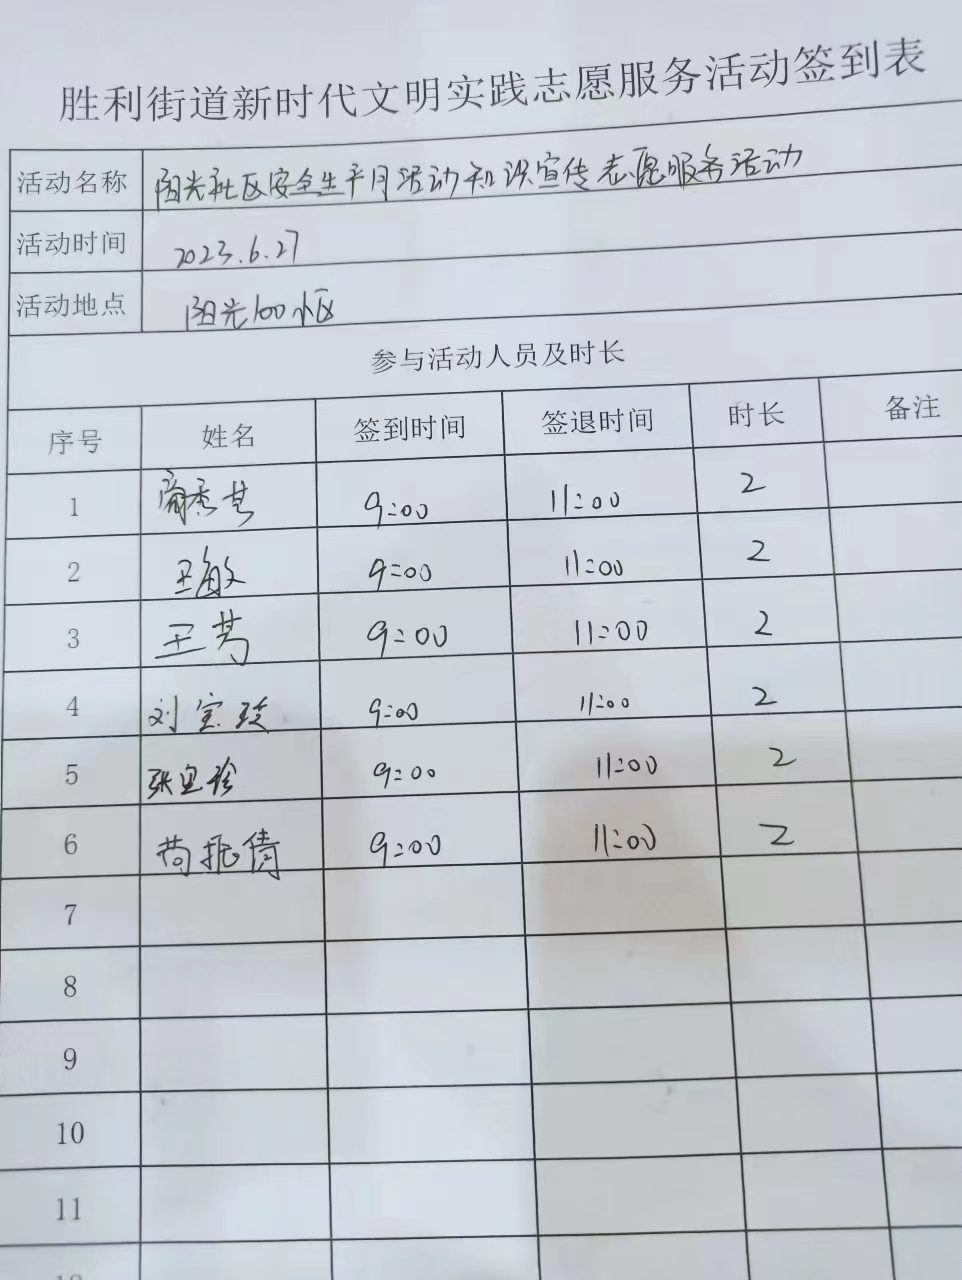 胜利街道新时代文明实践志愿服务活动签到表
活动名称 阳光社区安全生产月活动知识宣传志愿服务活动
活动时间 2023.6.27
活动地点 阳光100小区
参与活动人员及时长
序号 姓名 签到时间 签退时间 时长 备注
1 9:00 11:00 2
2 王敏 9:00 11:00 2
3 王芎 9:00 11:00 2
4 刘宝玫 9:00 11:00 2
5 张宝珍 9:00 11:00 2
6 苟振倩 9:00 11:00 2
7
8
9
10
11